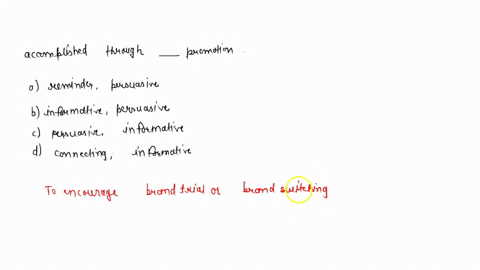 accomplished through ___ promotion.
a) reminder, persuasive
b) informative, persuasive
c) persuasive, informative
d) connecting, informative
To encourage brand trial or brand switching